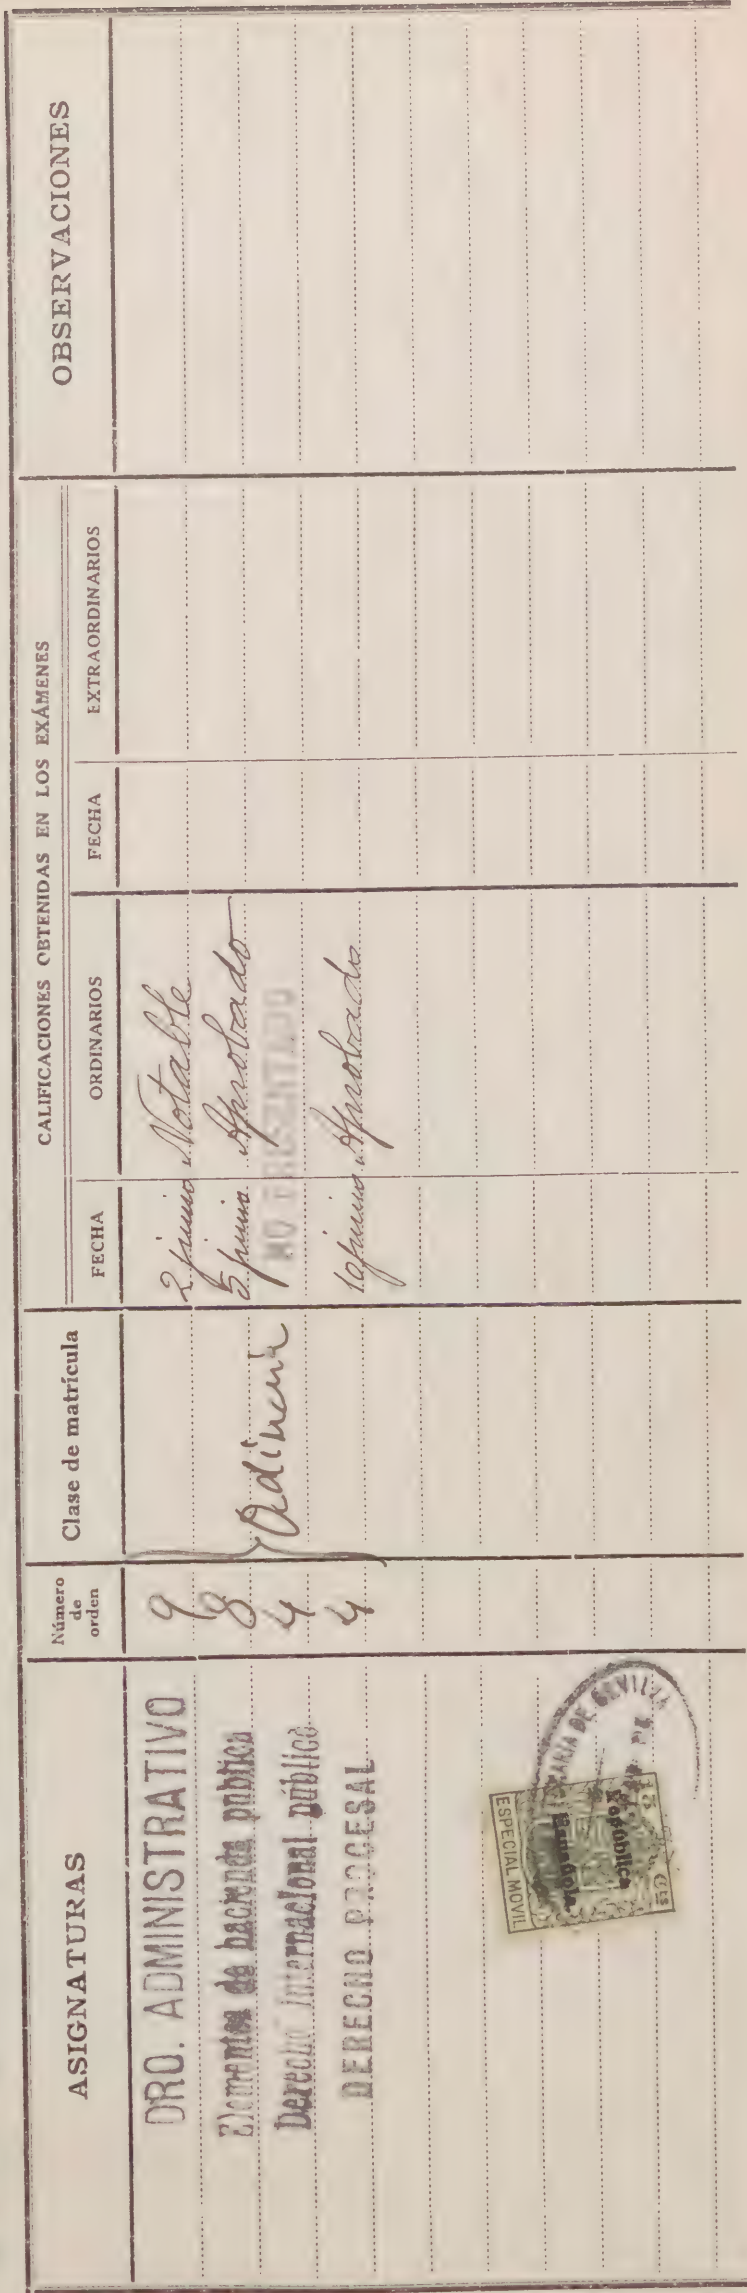 ASIGNATURAS
Número de orden
Clase de matrícula
CALIFICACIONES OBTENIDAS EN LOS EXÁMENES
FECHA
ORDINARIOS
FECHA
EXTRAORDINARIOS
OBSERVACIONES
DRO. ADMINISTRATIVO 9 2 junio Notable
Elementos de hacienda pública 8 5 junio Aprobado
Derecho internacional público 4 NO PRESENTADO
DERECHO PROCESAL 4 10 junio Aprobado
Ordinaria
ESPECIAL MOVIL
República
Española
15 Cts
DE SEVILLA